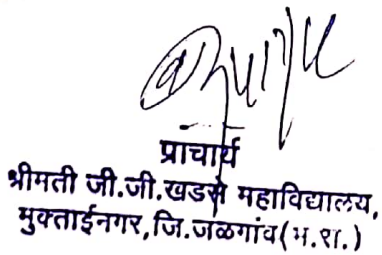 प्राचार्य
श्रीमती जी.जी.खडसे महाविद्यालय,
मुक्ताईनगर,जि.जळगांव(म.रा.)